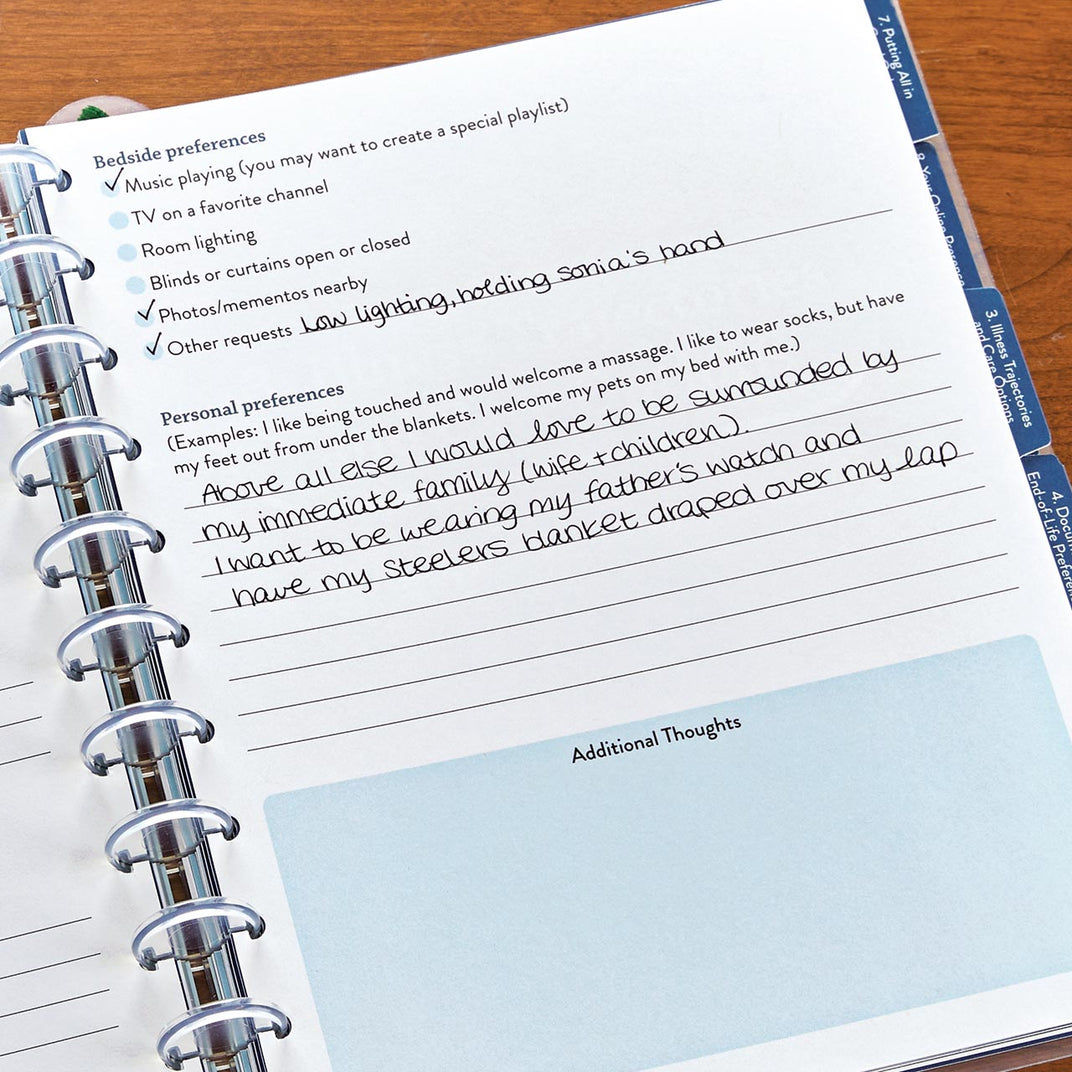 Bedside preferences
✓ Music playing (you may want to create a special playlist)
TV on a favorite channel
Room lighting
Blinds or curtains open or closed
✓ Photos/mementos nearby
✓ Other requests Low lighting, holding sonia's hand
Personal preferences
(Examples: I like being touched and would welcome a massage. I like to wear socks, but have
my feet out from under the blankets. I welcome my pets on my bed with me.)
Above all else I would love to be surrounded by
my immediate family (wife + children).
I want to be wearing my father's watch and
have my Steelers blanket draped over my lap
Additional Thoughts
7. Putting All in
8. Your Online Presence
3. Illness Trajectories
and Care Options
4. Docum
End-of-Life Preferen